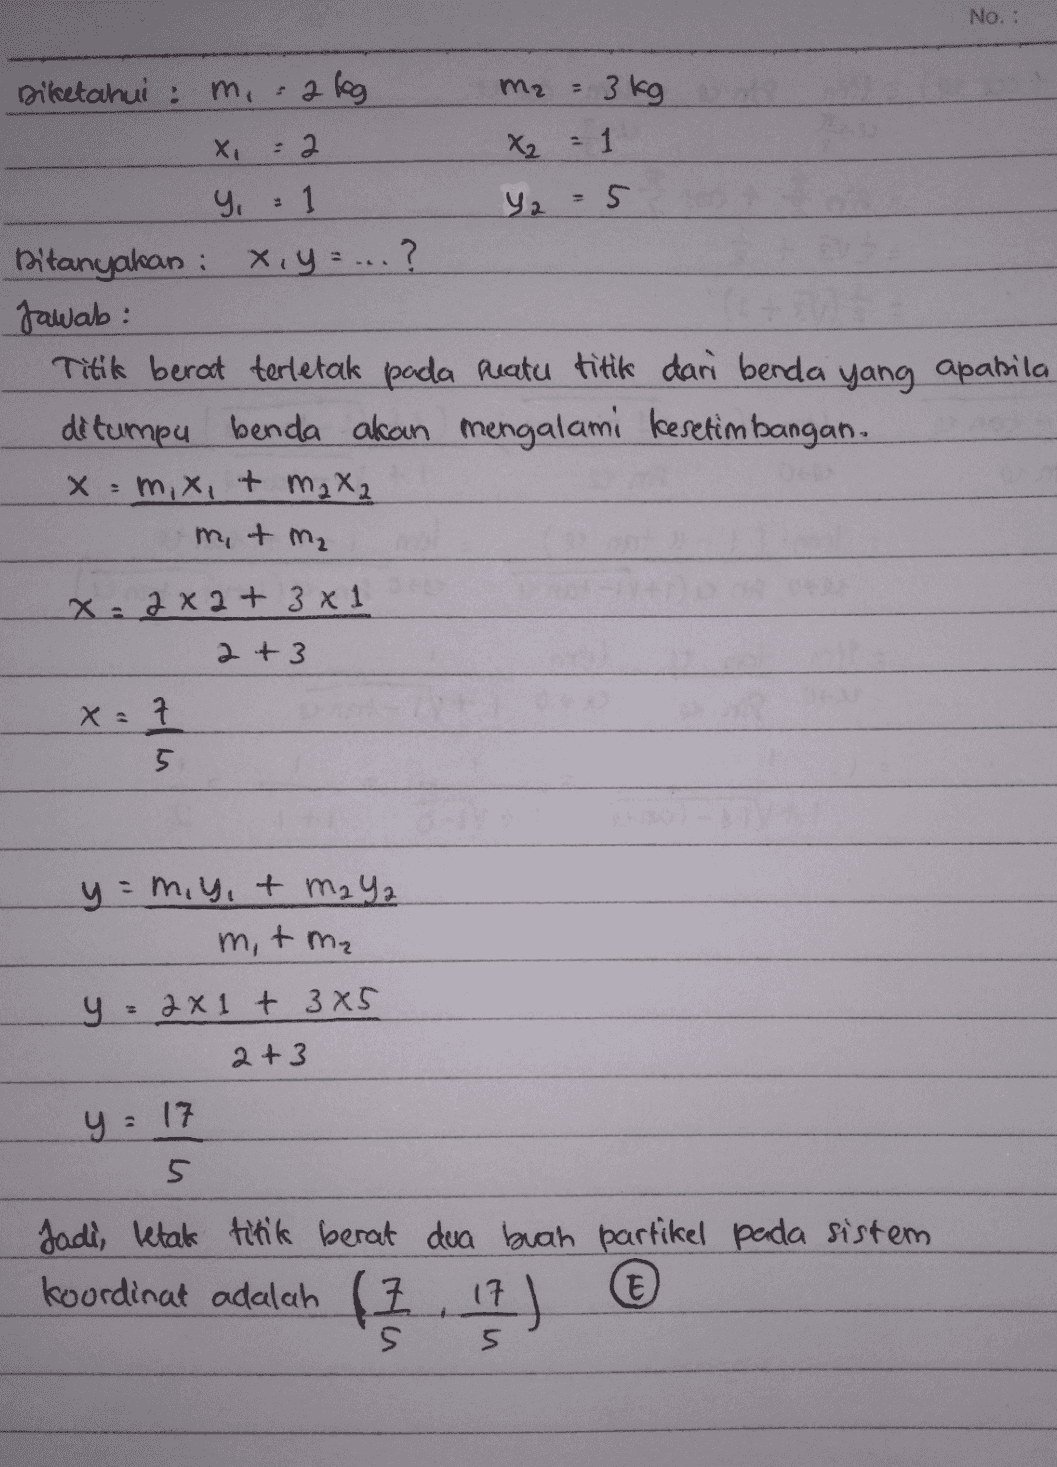 No. :
Diketahui : m₁ = 2 kg m₂ = 3 kg
x₁ = 2 x₂ = 1
y₁ = 1 y₂ = 5
Ditanyakan : x, y = ... ?
Jawab :
Titik berat terletak pada suatu titik dari benda yang apabila
ditumpu benda akan mengalami kesetimbangan.
x = m₁x₁ + m₂x₂
m₁ + m₂
x = 2 x 2 + 3 x 1
2 + 3
x = 7
5
y = m₁y₁ + m₂y₂
m₁ + m₂
y = 2x1 + 3x5
2 + 3
y = 17
5
Jadi, letak titik berat dua buah partikel pada sistem
koordinat adalah (7/5, 17/5) E